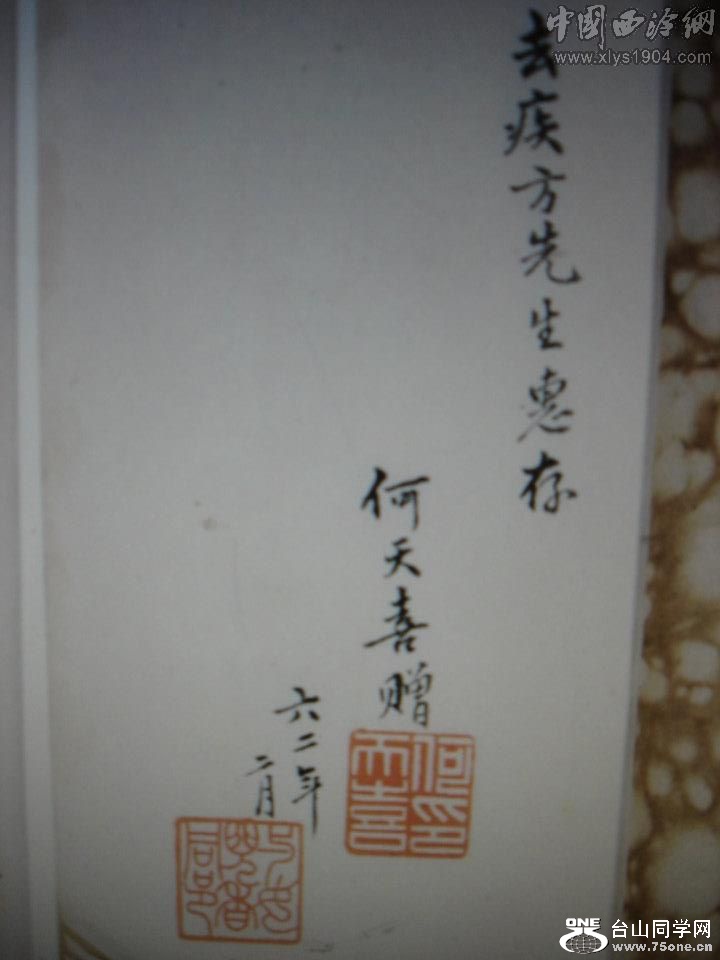 中国西泠網
www.xlys1904.com
去疾方先生惠存
何天喜赠
六二年
二月
何天喜印
ONE
台山同学网
www.75one.cn